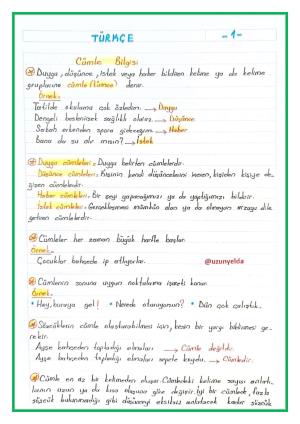 TÜRKÇE
-1-
Cümle Bilgisi
Duygu, düşünce, istek veya haber bildiren kelime ya da kelime
gruplarına cümle (tümce) denir.
Örnek:
Tatilde okuluma çok özledim. → Duygu
Dengeli beslenirsek sağlıklı oluruz. → Düşünce
Sabah erkenden spora gideceğim → Haber
Bana da su alır mısın? → İstek
Duygu cümleleri: Duygu belirten cümlelerdir.
Düşünce cümleleri: Kişinin kendi düşüncelerini içeren, kişiden kişiye de-
ğişen cümlelerdir.
Haber cümleleri: Bir şeyi yapacağımızı ya da yaptığımızı bildirir.
İstek cümleleri: Gerçekleşmesi mümkün olan ya da olmayan arzuyu dile
getiren cümlelerdir.
Cümleler her zaman büyük harfle başlar.
Örnek:
Çocuklar bahçede ip atlıyorlar.
@uzunyelda
Cümlenin sonuna uygun noktalama işareti konur.
Örnek:
• Hey, buraya gel! • Nerede oturuyorsun? • Dün çok çalıştık.
Sözcüklerin cümle oluşturabilmesi için, kesin bir yargı bildirmesi ge-
rekir.
Ayşe bahçeden topladığı elmaları → Cümle değildir.
Ayşe bahçeden topladığı elmaları sepete koydu. → Cümledir.
Cümle en az bir kelimeden oluşur. Cümledeki kelime sayısı anlatı-
lanın uzun ya da kısa oluşuna göre değişir. İyi bir cümlede, fazla
sözcük bulunmadığı gibi düşünceyi eksiksiz anlatacak kadar sözcük